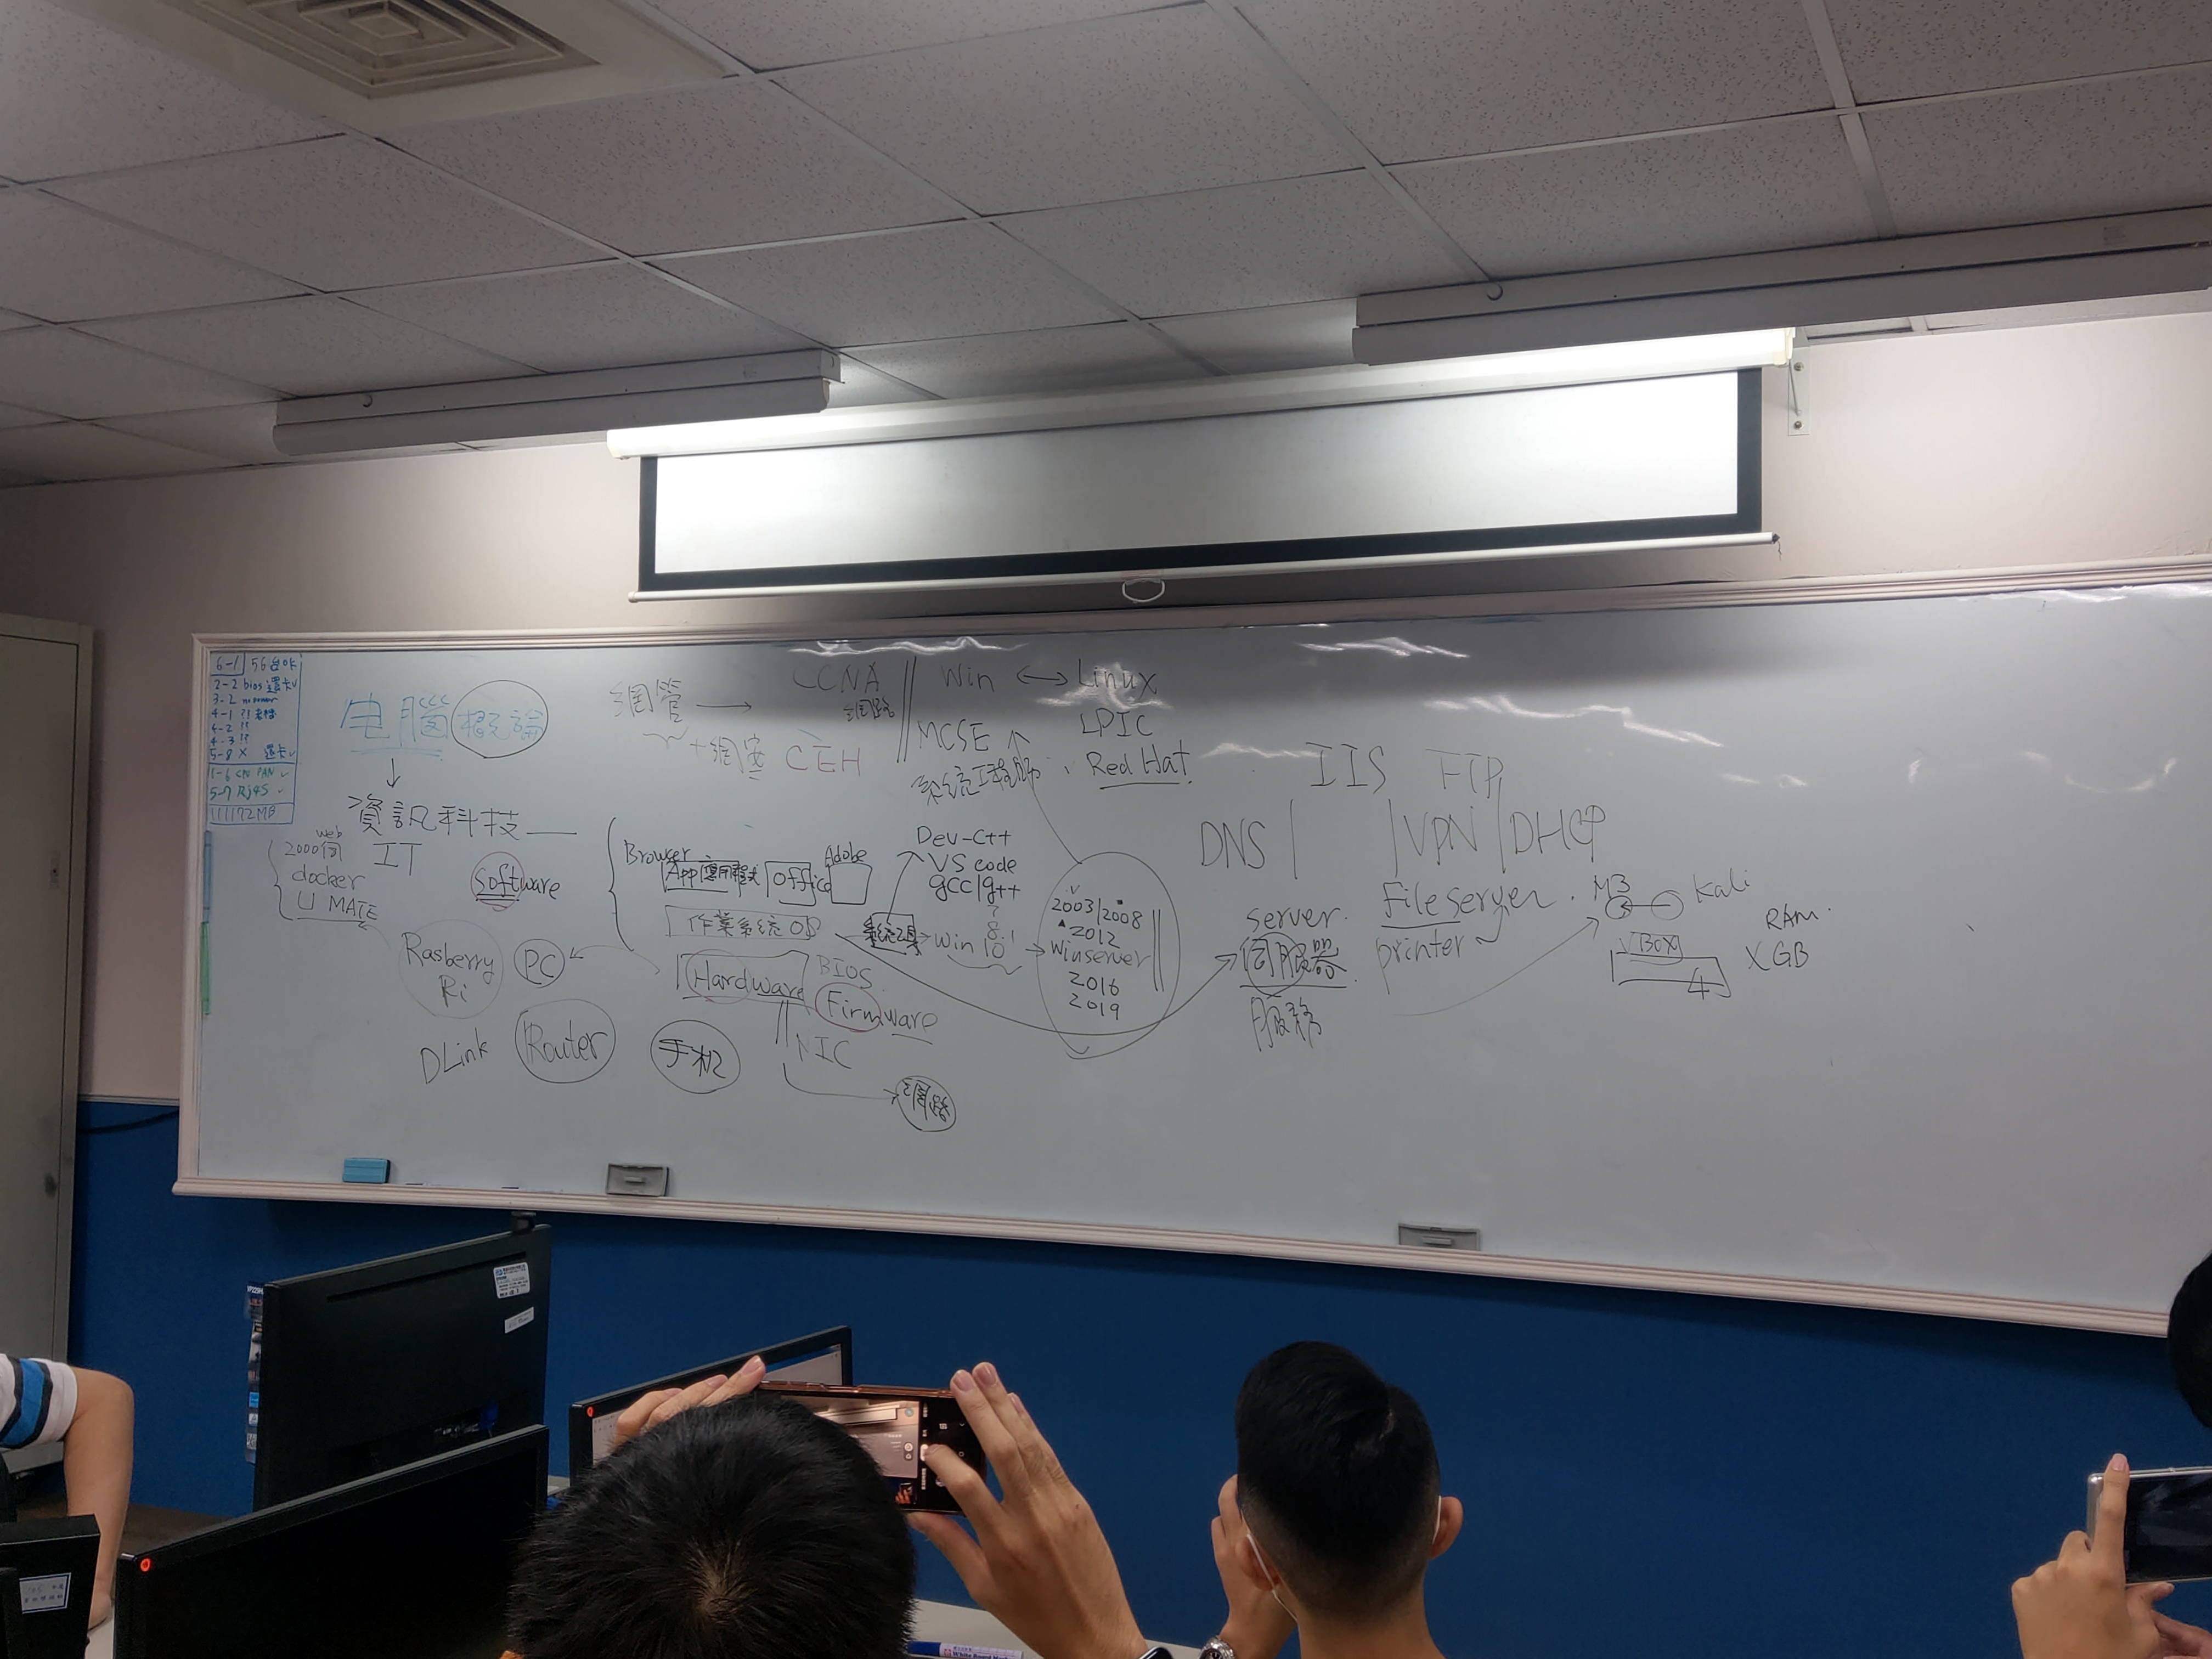 6-1 56台OK
2-2 bios 還卡✓
3-2
4-1 ??
4-2 ??
4-3 ??
5-8 X 還卡✓
1-6 CPU FAN ✓
5-7 Rj45 ✓
111172MB
电腦概論
資訊科技
IT
web
2000個
docker
U MATE
Software
Rasberry
Ri
PC
DLink
Router
手机
網管 → CCNA
網路
+網安 CEH
Win ↔ Linux
MCSE
LPIC
系统工程師、
Red Hat
Browser
App應用程式
Office
Adobe
作業系統 OS
Hardware
BIOS
Firmware
NIC
網路
Dev-C++
VS code
gcc/g++
系統工具
7
8.1
Win 10
2003/2008
2012
Winserver
2016
2019
IIS
FTP
DNS
VPN
DHCP
Server
伺服器
服務
File server
printer
M3
Kali
VBOX
4
RAM
X GB